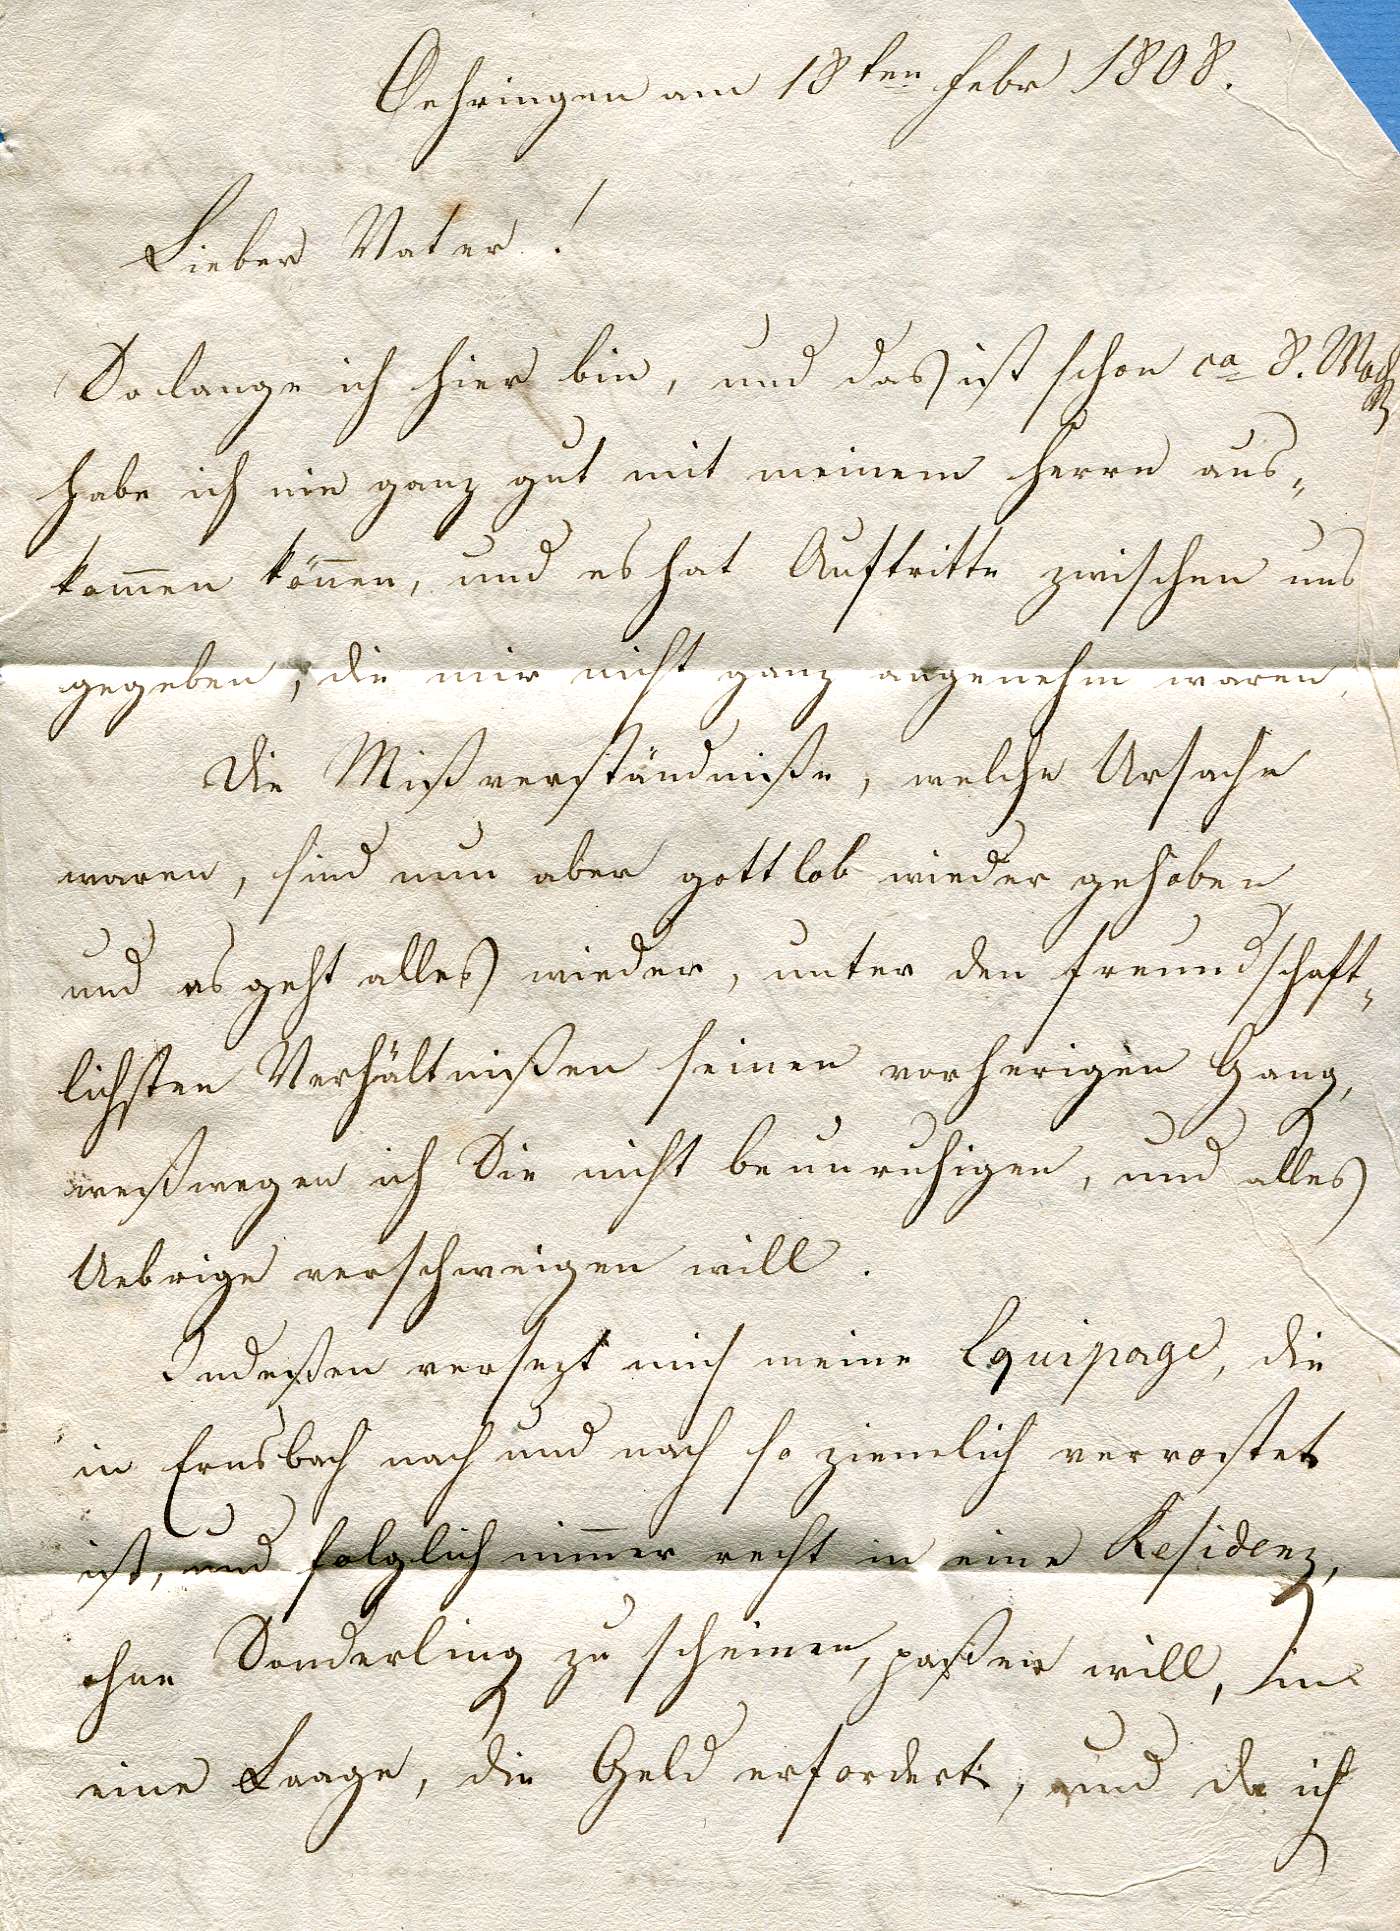 Oehringen am 18ten Febr 1808.
Lieber Vater!
Solange ich hier bin, und das ist schon ca 8. Woch
habe ich nie ganz gut mit meinem Herrn aus„
kom̄en kön̄en, und es hat Auftritte zwischen uns
gegeben, die mir nicht ganz angenehm waren,
Die Mißverständniße, welche Ursache
waren, sind nun aber gottlob wieder gehoben
und es geht alles wieder, unter den freundschaft„
lichsten Verhältnißen seinen vorherigen Gang,
weßwegen ich Sie nicht beunruhigen, und alles
Uebrige verschweigen will.
Indeßen versezt mich meine Equipage, die
in Ernsbach nach und nach so ziemlich verrostet
ist, und folglich nim̄er recht in eine Residenz,
ohne Sonderling zu scheinen, paßen will, in
eine Laage, die Geld erfordert, und da ich